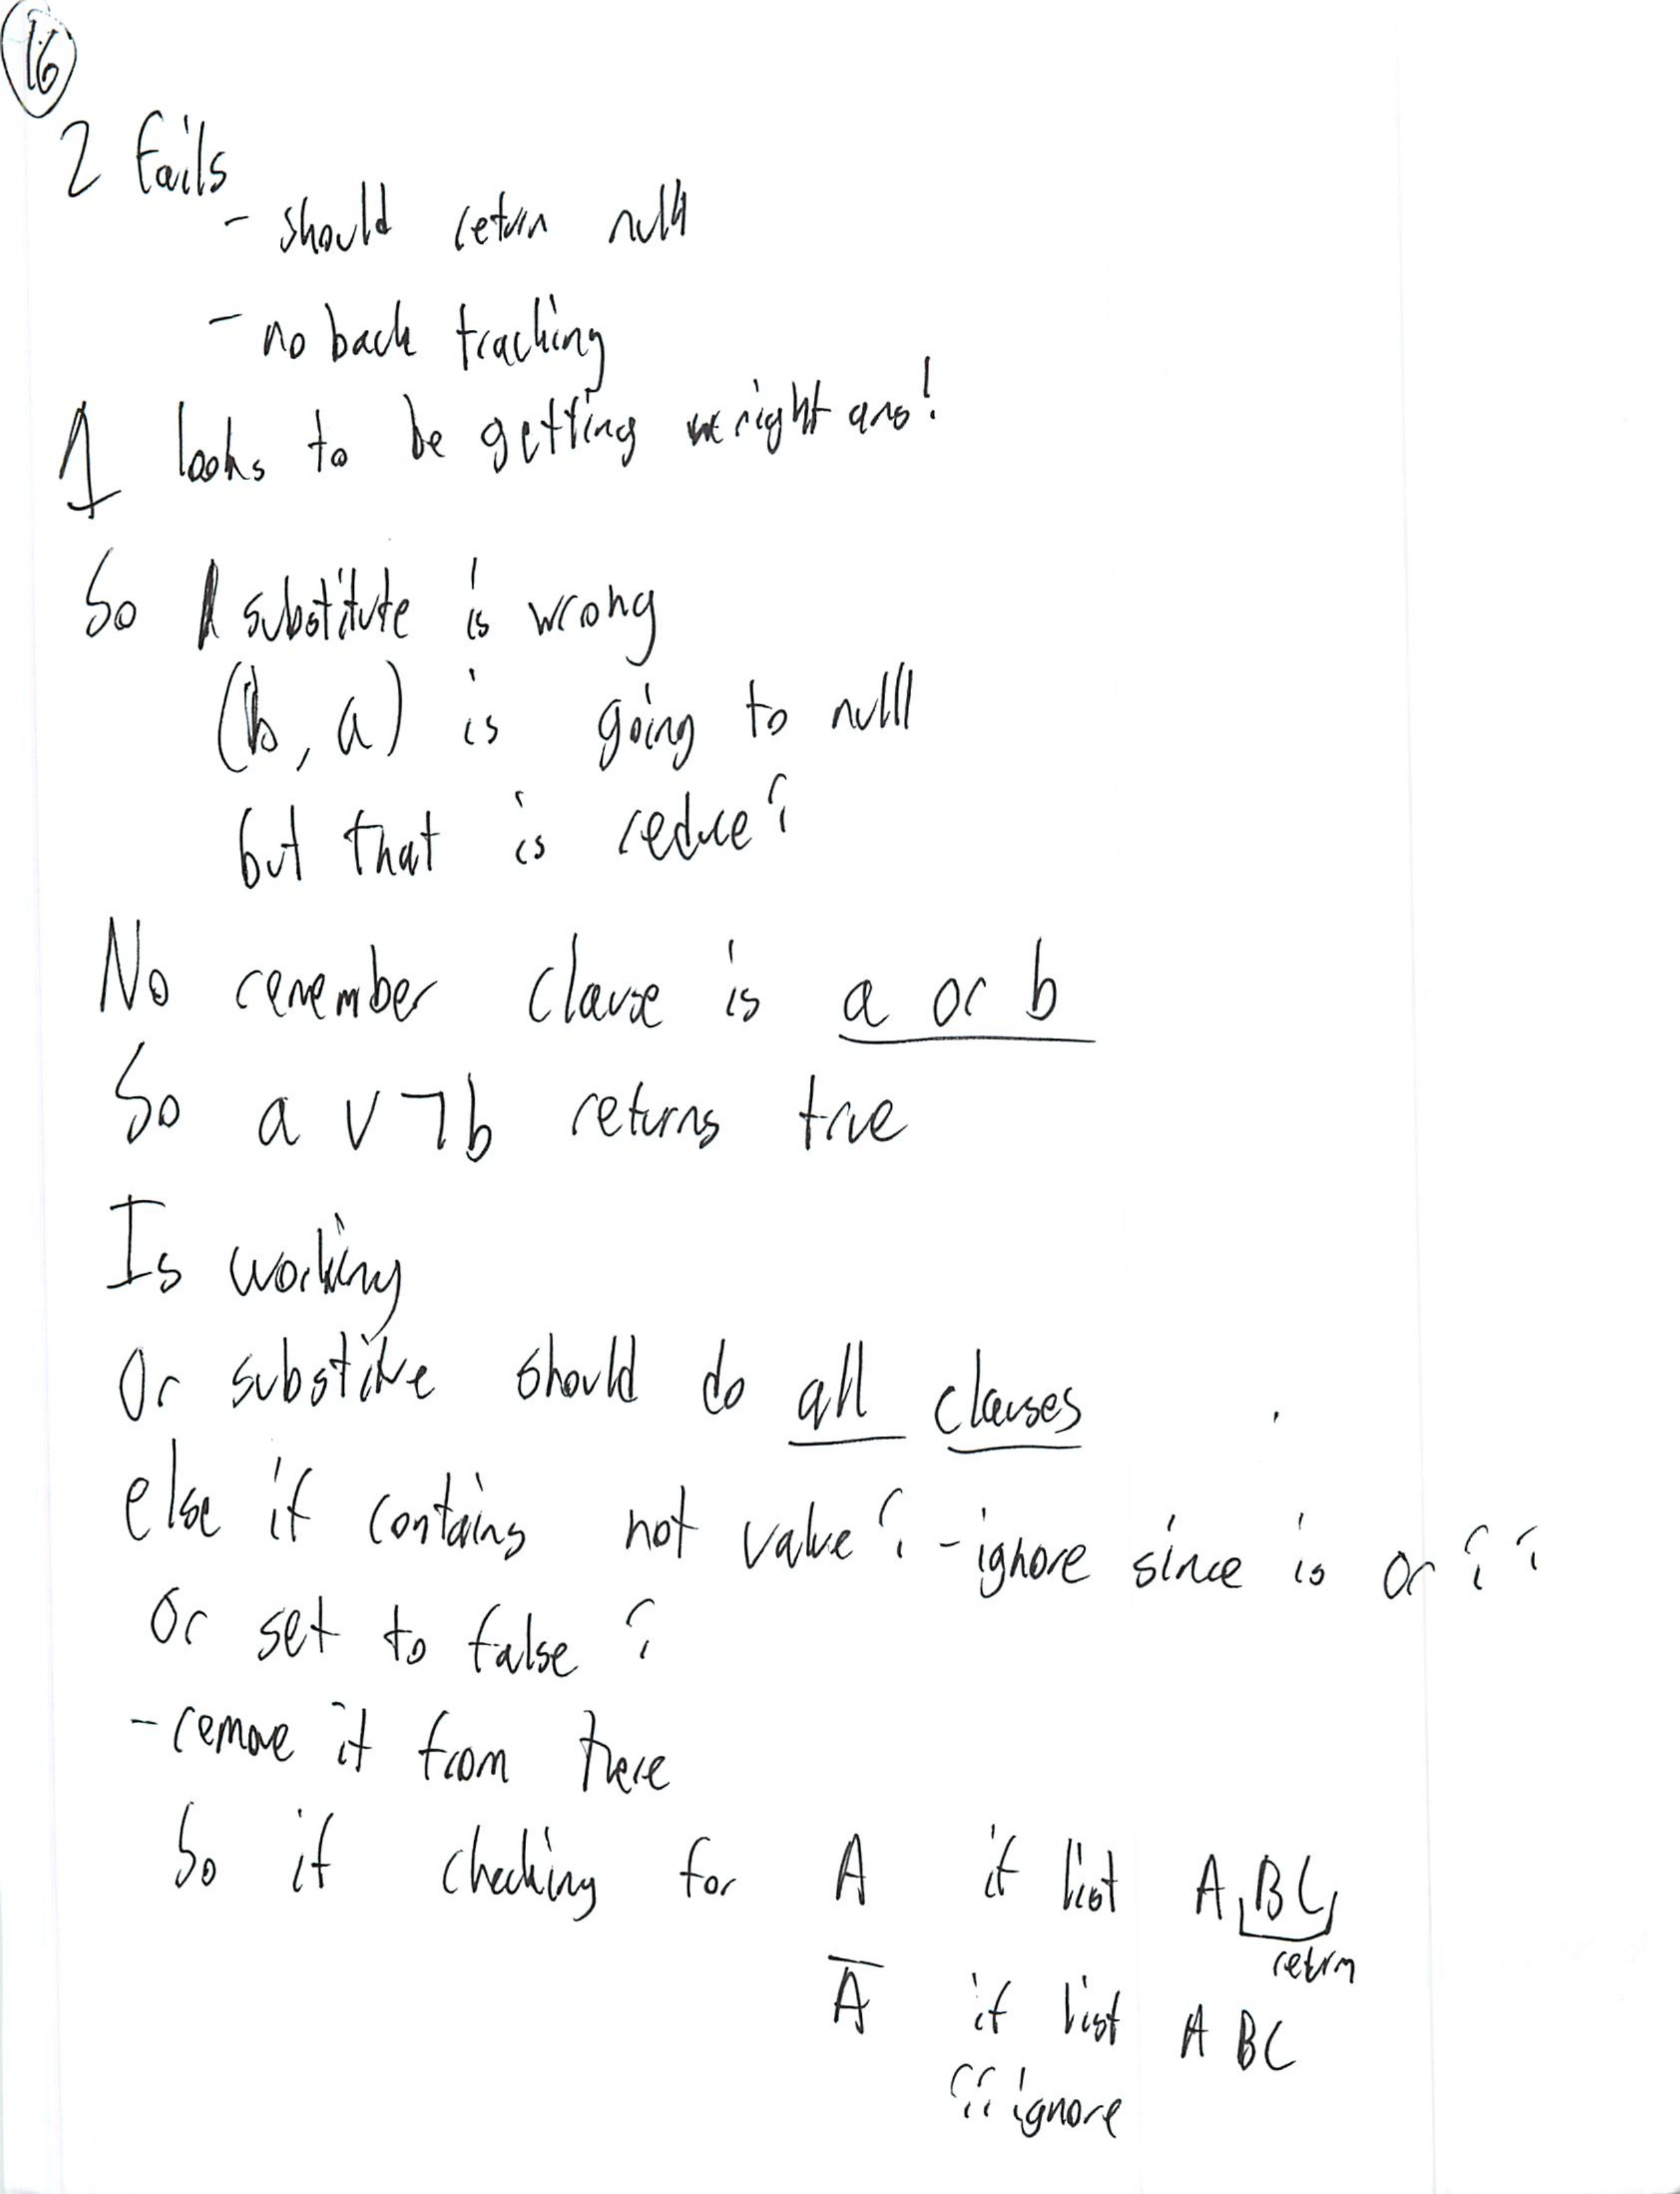 16
2 fails
- should return null
- no back tracking
1 looks to be getting right ans!
So substitute is wrong
(b, a) is going to null
but that is reduce?
No remember clause is a or b
So a ∨ ¬b returns true
Is working
Or substitue should do all clauses
else if contains not value? - ignore since is or??
or set to false?
- remove it from there
So if checking for A if list A, BC,
return
A̅ if list A BC
?? ignore